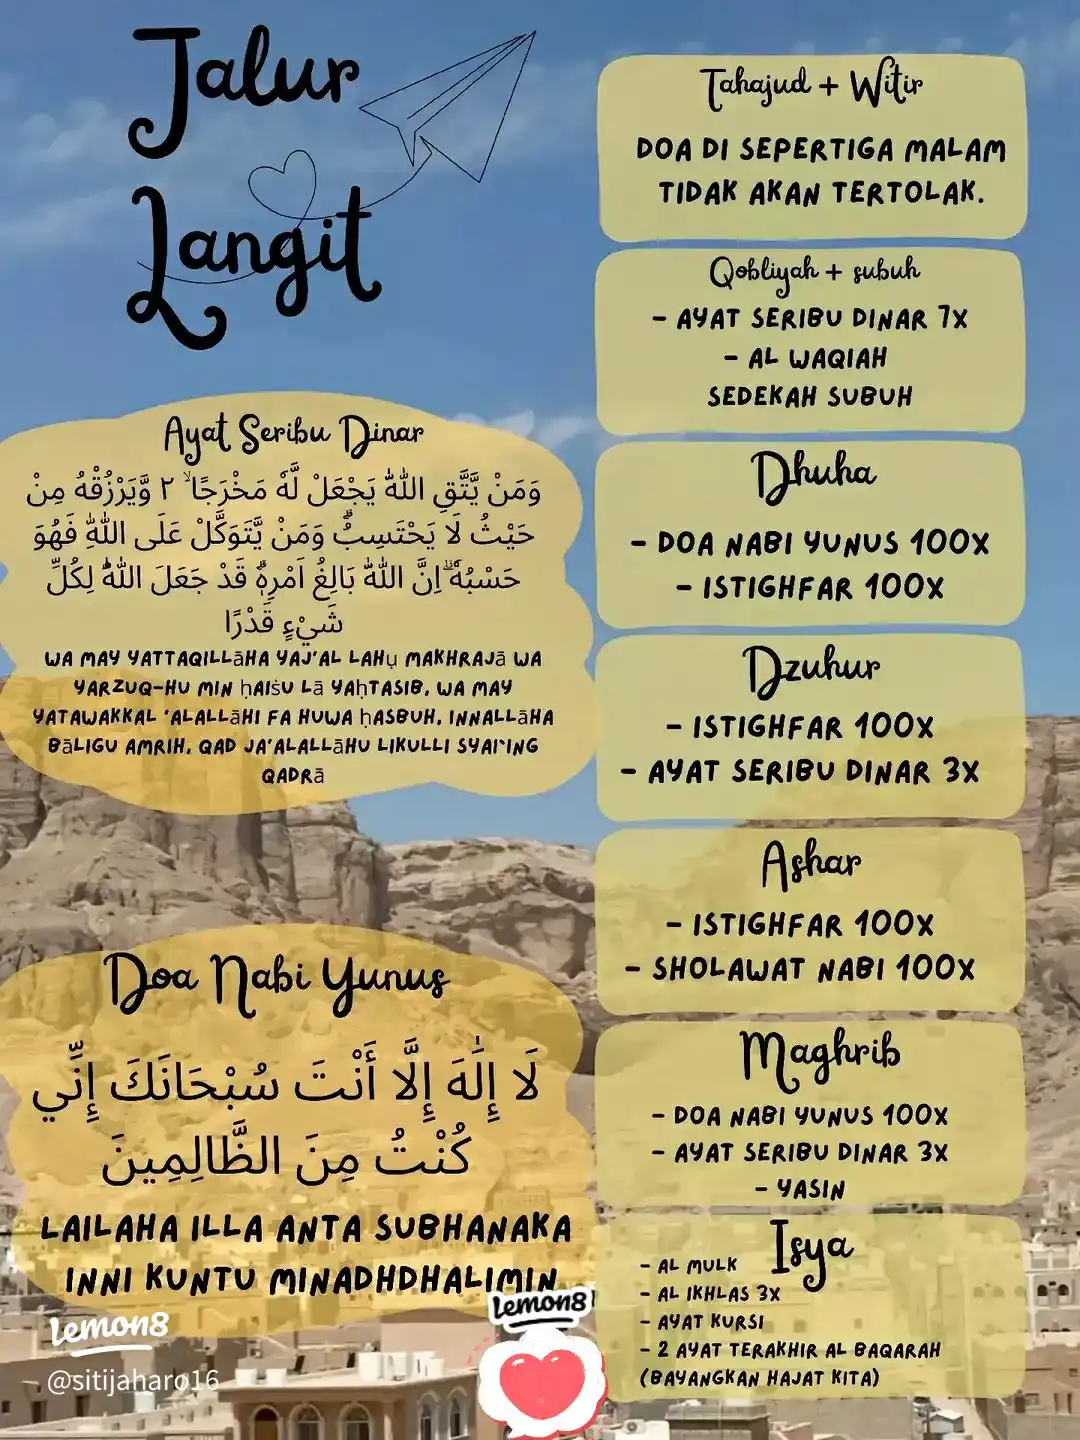 Jalur
Langit
Ayat Seribu Dinar
وَمَنْ يَّتَّقِ اللّٰهَ يَجْعَلْ لَّهٗ مَخْرَجًا ۙ ٢ وَّيَرْزُقْهُ مِنْ
حَيْثُ لَا يَحْتَسِبُۗ وَمَنْ يَّتَوَكَّلْ عَلَى اللّٰهِ فَهُوَ
حَسْبُهٗ ۗاِنَّ اللّٰهَ بَالِغُ اَمْرِهٖۗ قَدْ جَعَلَ اللّٰهُ لِكُلِّ
شَيْءٍ قَدْرًا
WA MAY YATTAQILLāHA YAJ'AL LAHụ MAKHRAJā WA
YARZUQ-HU MIN ḥAIṡU Lā YAḥTASIB, WA MAY
YATAWAKKAL 'ALALLāHI FA HUWA ḥASBUH, INNALLāHA
BāLIGU AMRIH, QAD JA'ALALLāHU LIKULLI SYAI`ING
QADRā
Doa Nabi Yunus
لَا إِلَٰهَ إِلَّا أَنْتَ سُبْحَانَكَ إِنِّي
كُنْتُ مِنَ الظَّالِمِينَ
LAILAHA ILLA ANTA SUBHANAKA
INNI KUNTU MINADHDHALIMIN
Tahajud + Witir
DOA DI SEPERTIGA MALAM
TIDAK AKAN TERTOLAK.
Qobliyah + subuh
- AYAT SERIBU DINAR 7X
- AL WAQIAH
SEDEKAH SUBUH
Dhuha
- DOA NABI YUNUS 100X
- ISTIGHFAR 100X
Dzuhur
- ISTIGHFAR 100X
- AYAT SERIBU DINAR 3X
Ashar
- ISTIGHFAR 100X
- SHOLAWAT NABI 100X
Maghrib
- DOA NABI YUNUS 100X
- AYAT SERIBU DINAR 3X
- YASIN
Isya
- AL MULK
- AL IKHLAS 3X
- AYAT KURSI
- 2 AYAT TERAKHIR AL BAQARAH
(BAYANGKAN HAJAT KITA)
lemon8
@sitijaharo16
lemon8